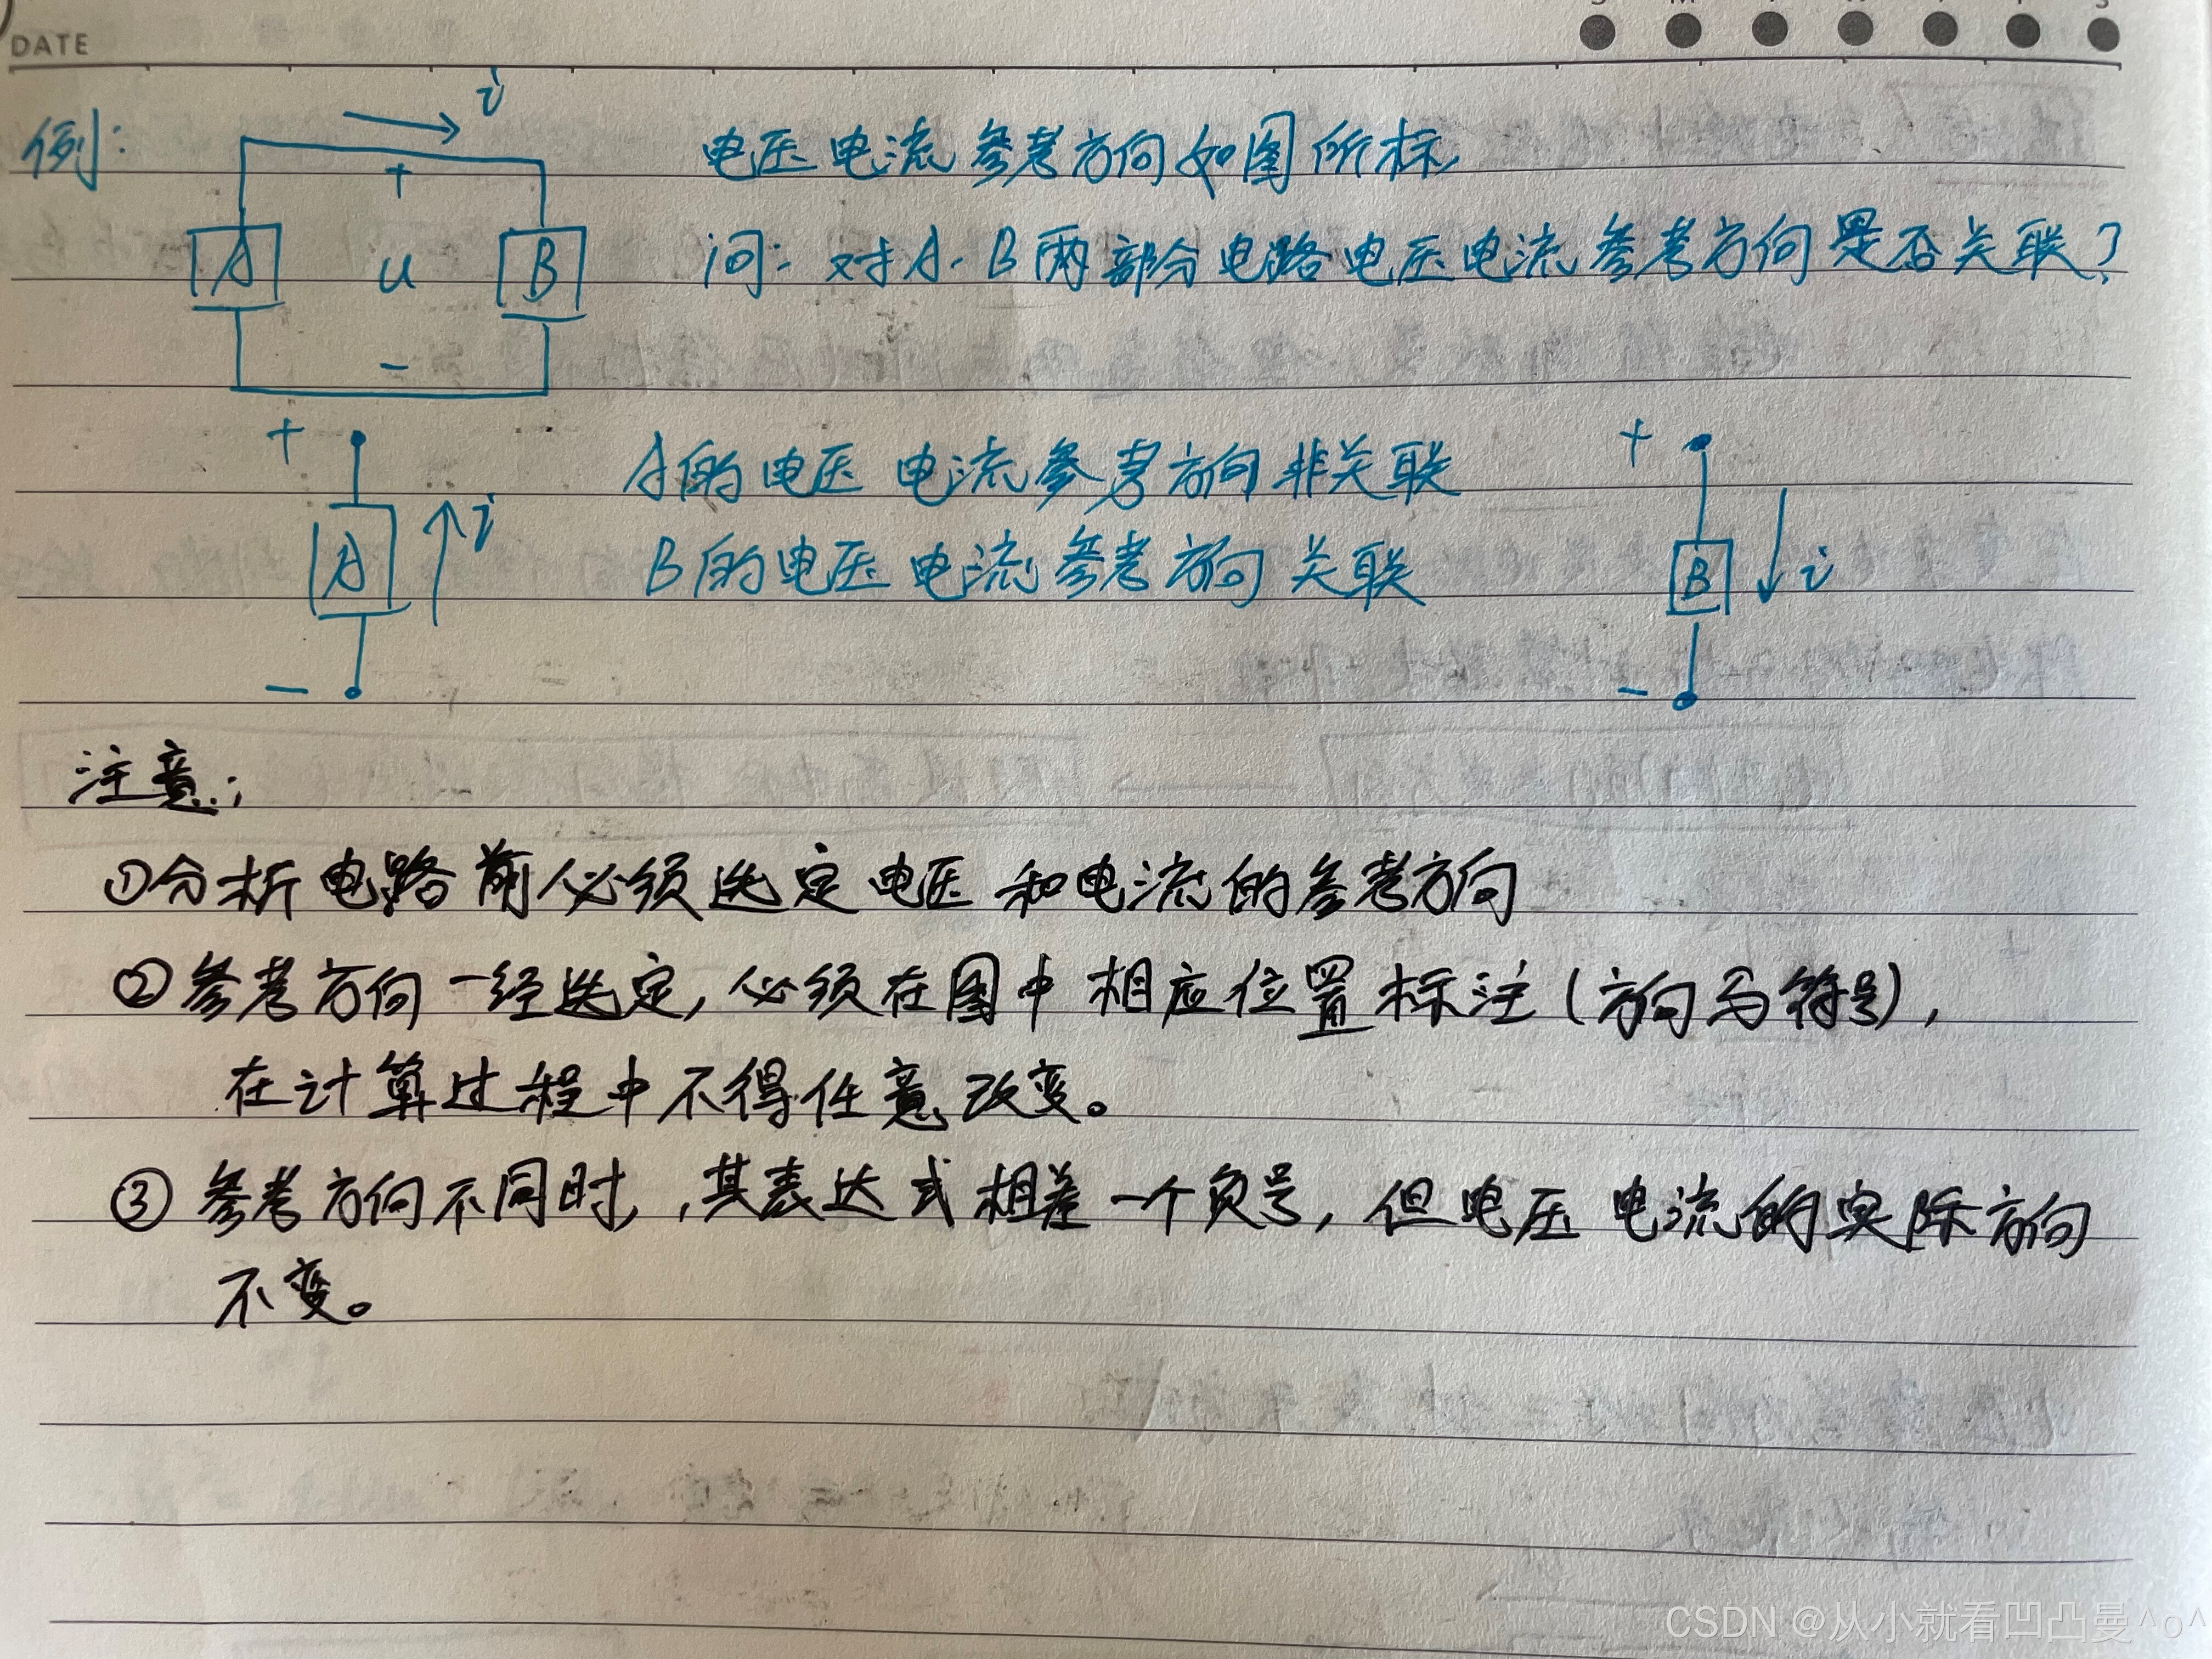 DATE
例:
i
电压电流参考方向如图所标
+
A
u
B
问: 对A、B两部分电路电压电流参考方向是否关联?
-
+
A
i
-
A的电压电流参考方向非关联
B的电压电流参考方向关联
+
B
i
-
注意:
①分析电路前必须选定电压和电流的参考方向
②参考方向一经选定,必须在图中相应位置标注(方向与符号),
在计算过程中不得任意改变。
③参考方向不同时,其表达式相差一个负号,但电压电流的实际方向
不变。
CSDN @从小就看凹凸曼^o^